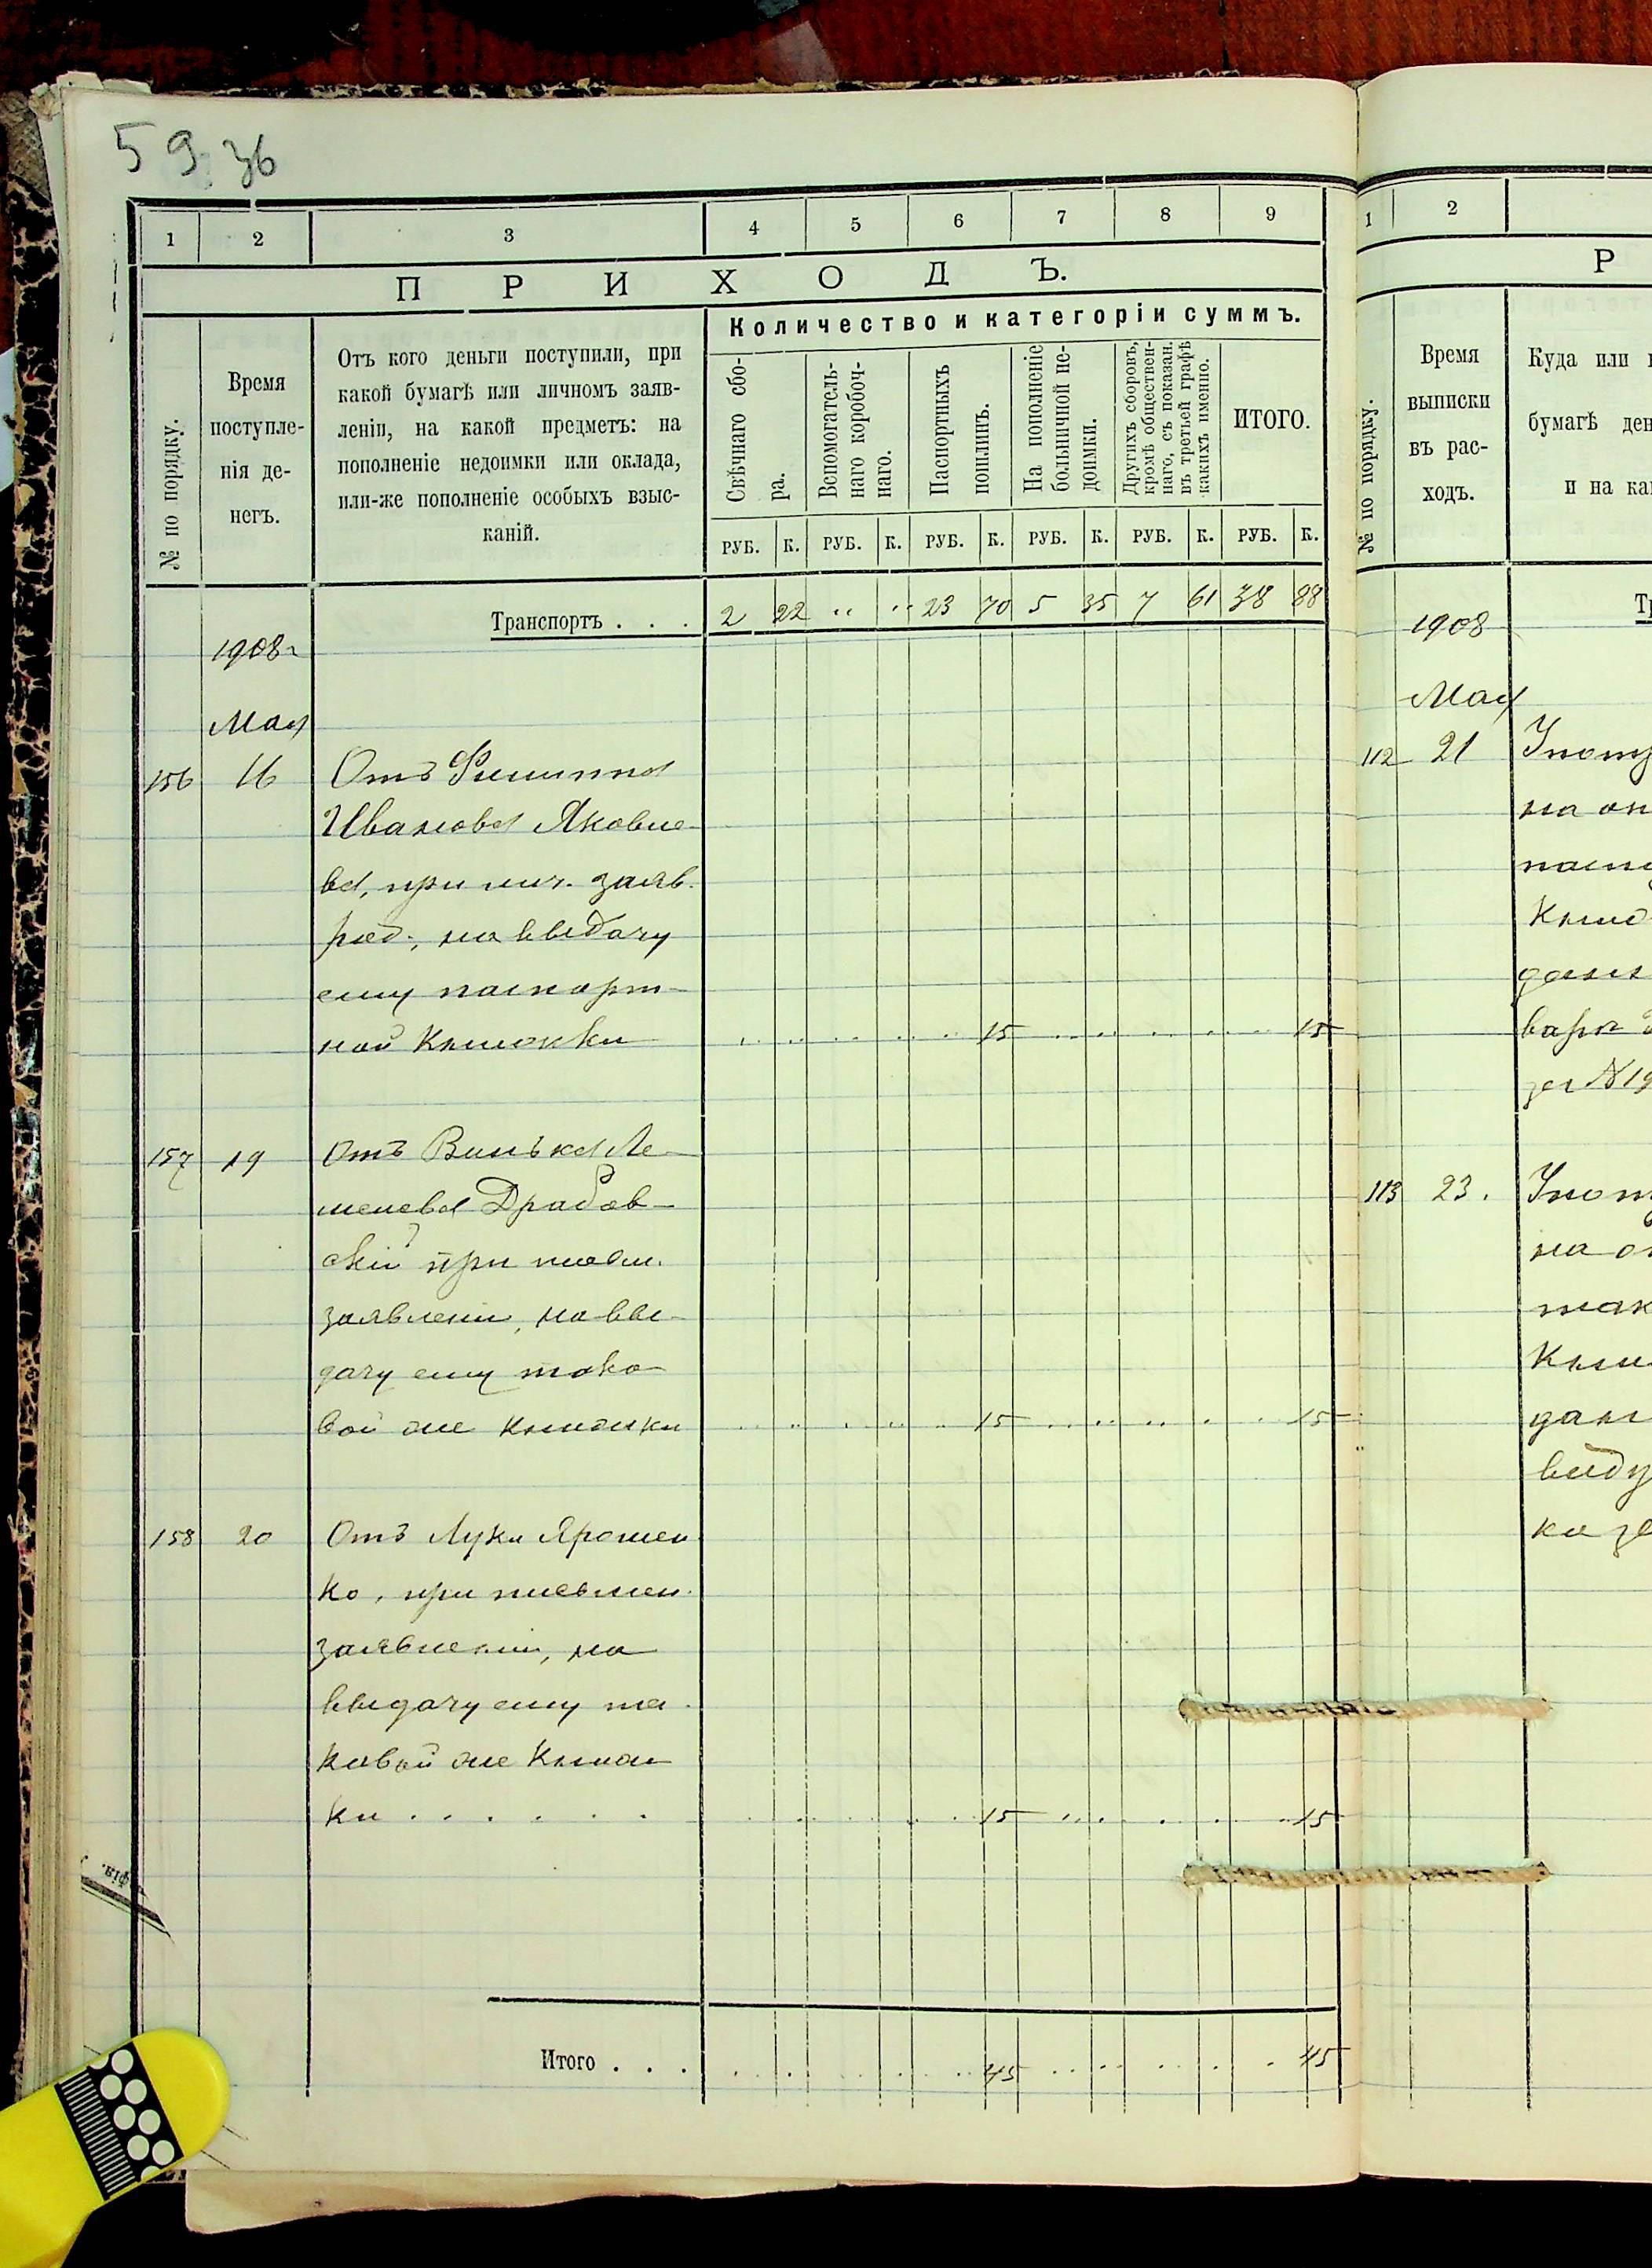 59. 36
1 2 3 4 5 6 7 8 9
ПРИХОДЪ.
№ по порядку.
Время
поступле-
нія де-
негъ.
Отъ кого деньги поступили, при
какой бумагѣ или личномъ заяв-
леніи, на какой предметъ: на
пополненіе недоимки или оклада,
или-же пополненіе особыхъ взыс-
каній.
Количество и категоріи суммъ.
Свѣчнаго сбо-
ра.
Вспомогатель-
наго коробоч-
наго.
Паспортныхъ
пошлинъ.
На пополненіе
больничной не-
доимки.
Другихъ сборовъ,
кромѣ обществен-
наго, съ показан.
въ третьей графѣ
какихъ именно.
ИТОГО.
РУБ. К. РУБ. К. РУБ. К. РУБ. К. РУБ. К. РУБ. К.
Транспортъ . . . 2 22 " " 23 70 5 35 7 61 38 88
1908 г
Мая
156 16 Отъ Филиппа
Иванова Яковле-
ва, при лич. заяв.
на выдачу
ему паспорт-
ной книжки 15 15
157 19 Отъ
Драбов-
скій при письм.
заявлении, на вы-
дачу ему тако-
вой же книжки 15 15
158 20 Отъ Луки Ярошен
ко, при письмен.
заявлении, на
выдачу ему та-
ковой же книж
ки . . . . . . 15 15
Итого . . . 45 45
фія.
1 2
Р
№ по порядку.
Время
выписки
въ рас-
ходъ.
Куда или
бумагѣ ден
и на ка
Т
1908
Мая
112 21
на
Книж
за №19
113 23.
на
так
Книж
дан
виду